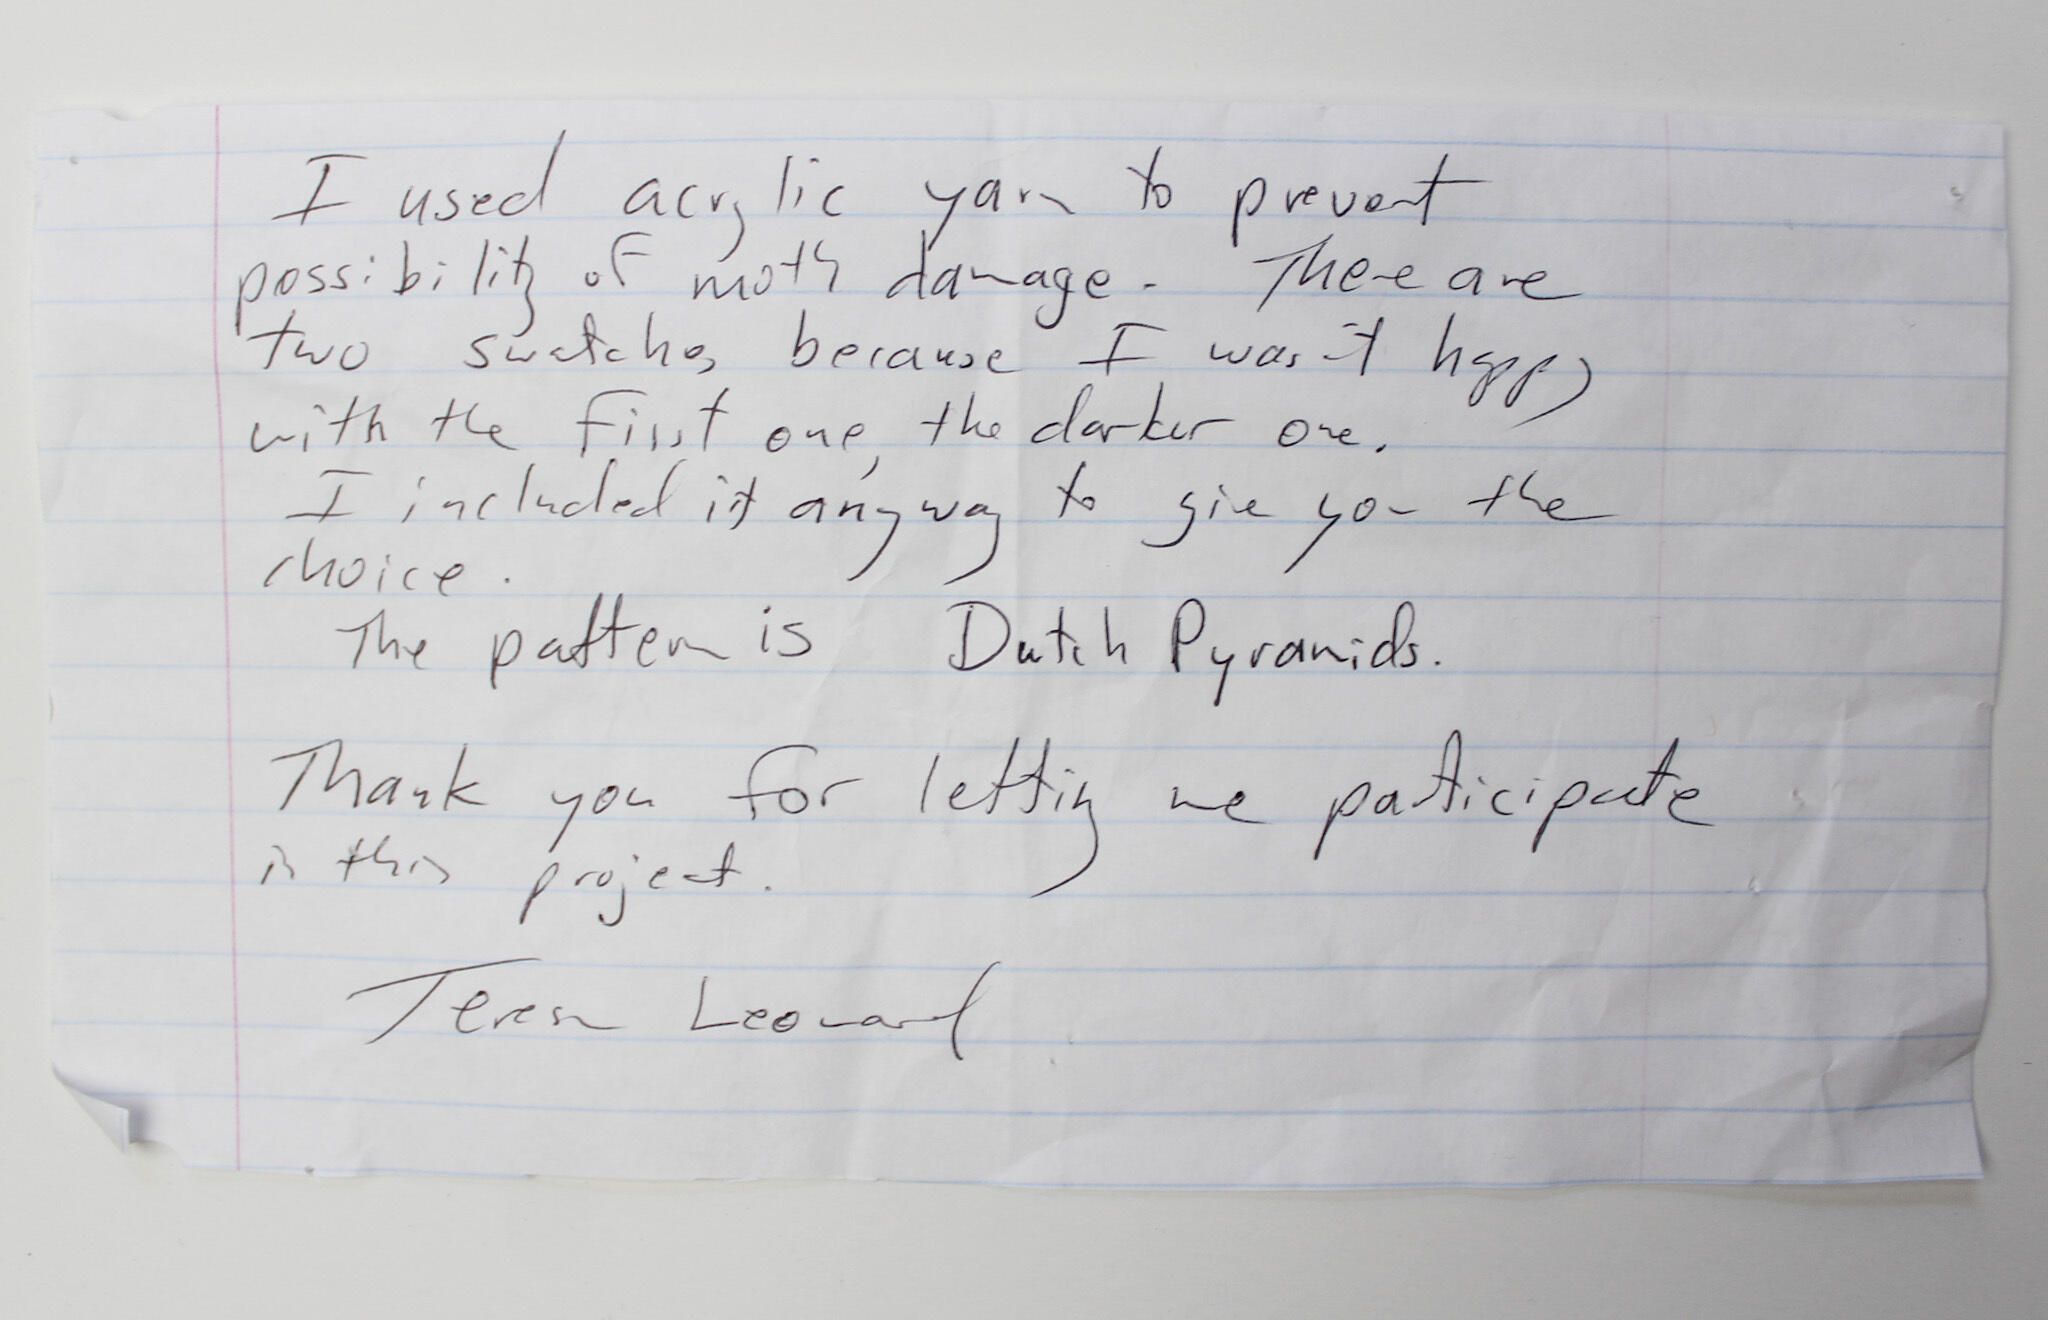 I used acrylic yarn to prevent
possibility of moth damage. There are
two swatches because I wasn't happy
with the first one, the darker one.
I included it anyway to give you the
choice.
The pattern is Dutch Pyramids.
Thank you for letting me participate
in this project.
Teresa Leonard